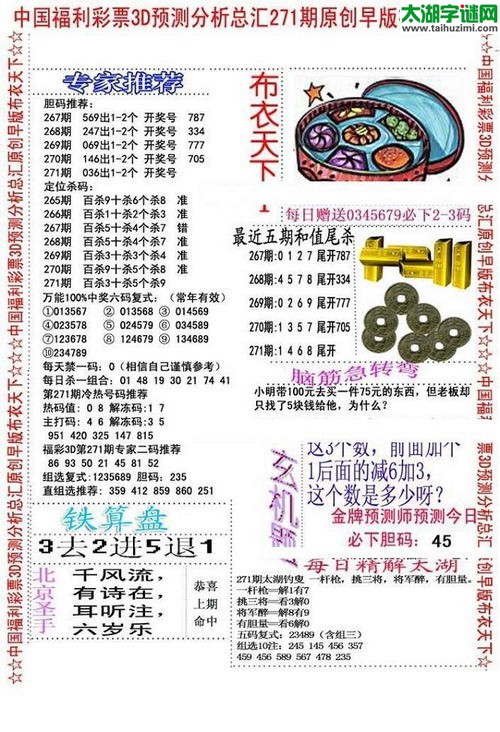 中国福利彩票3D预测分析总汇271期原创早版
太湖字谜网
www.taihuzimi.com
☆☆中国福利彩票3D预测分析总汇原创早版布衣天下☆☆
专家推荐
胆码推荐:
267期 569出1-2个 开奖号 787
268期 247出1-2个 开奖号 334
269期 068出1-2个 开奖号 777
270期 146出1-2个 开奖号 705
271期 036出1-2个 开奖号
定位杀码:
265期 百杀9十杀6个杀8 准
266期 百杀5十杀2个杀4 准
267期 百杀5十杀4个杀7 错
268期 百杀0十杀7个杀6 准
269期 百杀0十杀4个杀2 准
270期 百杀9十杀5个杀8 准
271期 百杀3十杀5个杀9
万能100%中奖六码复式: (常年有效)
①013567 ②013568 ③014569
④023578 ⑤024579 ⑥034679
⑦123678 ⑧124679 ⑨134689
⑩234789
每天禁一码: 0 (相信自己谨慎参考)
每日杀一组合: 01 48 19 30 21 74 41
第271期冷热号码推荐
热码值: 0 8 解冻码:1 7
主打码: 4 6 解冻码: 3 5
951 420 325 147 815
福彩3D第271期专家二码推荐
86 93 50 21 45 81 52
组选复式:1235689 胆码: 235
直组选推荐: 359 412 859 860 251
铁算盘
3去2进5退1
北京圣手
千风流,
有诗在,
耳听注,
六岁乐
恭喜
上期
命中
布衣天下
1
每日赠送0345679必下2-3码
最近五期和值尾杀
267期:0 1 2 7 尾开787
268期:4 5 7 8 尾开334
269期:0 2 6 9 尾开777
270期:1 3 5 7 尾开705
271期:1 4 6 8 尾开
脑筋急转弯
小明带100元去买一件75元的东西, 但老板却
只找了5块钱给他, 为什么?
玄机
这3个数, 前面加个
1后面的减6加3,
这个数是多少呀?
金牌预测师预测今日
必下胆码: 45
每日精解太湖
271期太湖钓叟 一杆枪, 挑三将, 将军醉, 有胆量。
一杆枪——解1有7
挑三将——看3解0
将军醉——解8有9
有胆量——看6解0
五码复式: 23489 (含组三)
组选10注: 245 145 456 357
459 456 589 567 478 235